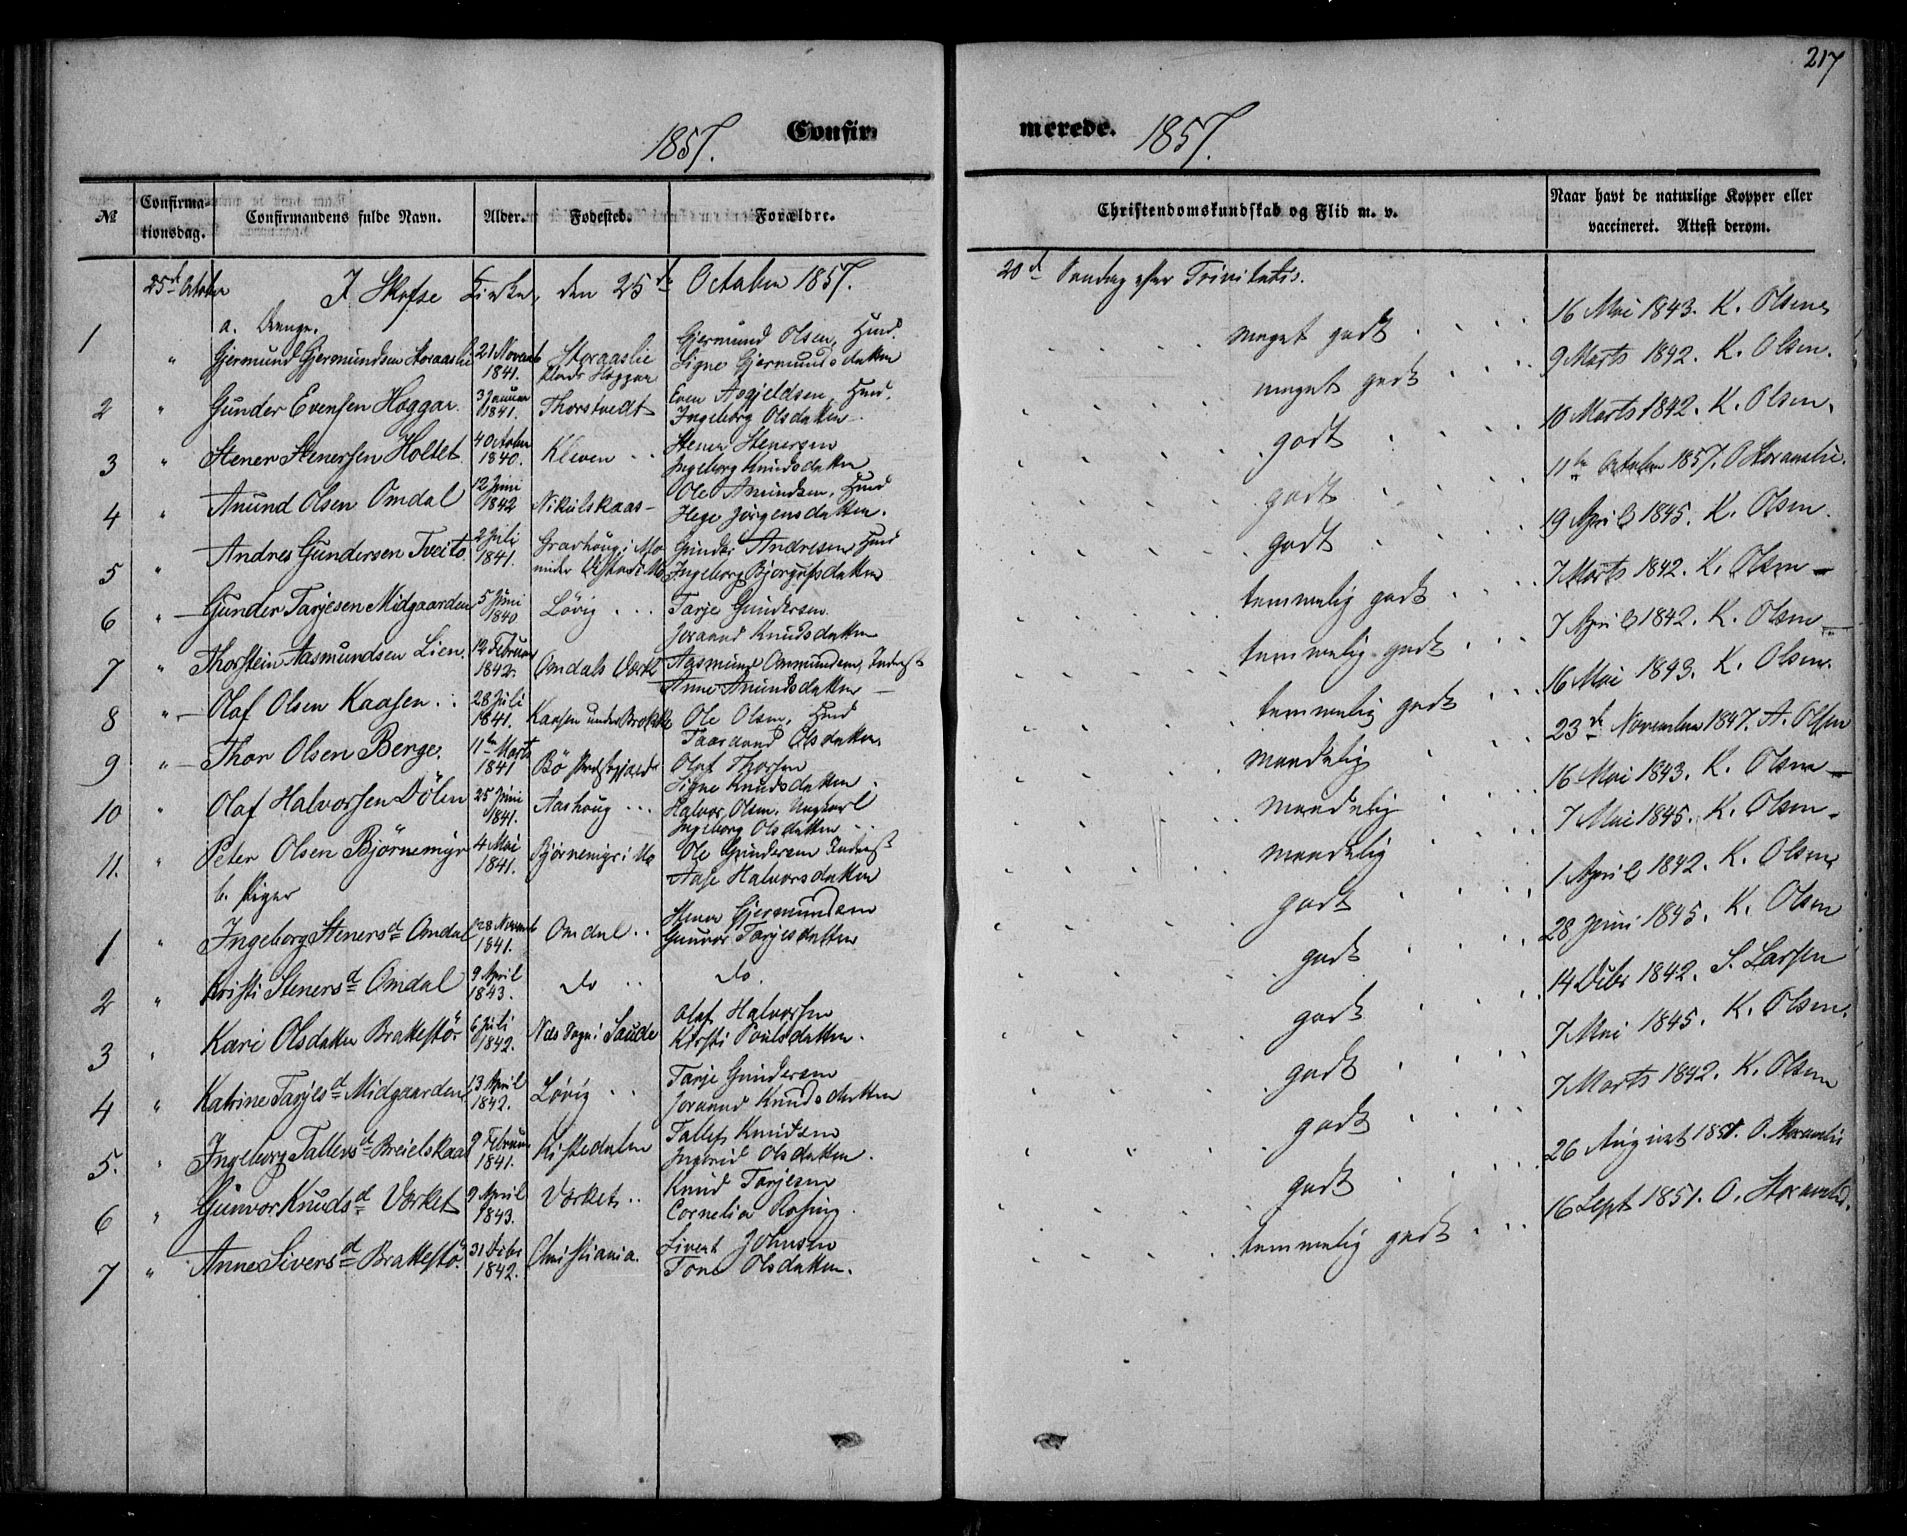 217
1857. Confir- merede. 1857.
№ Confirma-tionsdag. Confirmandens fulde Navn. Alder. Fødested. Forældre. Christendomskundskab og Flid m. v. Naar havt de naturlige Kopper eller vaccineret. Attest derom.
25de October I Skafse Kirke, den 25de October 1857. 20de Søndag efter Trinitatis.
a. Drenge.
1 " Gjermund Gjermundsen Storaaslie 21 Novemb 1841. Storaaslie Gjermund Olsen, Huusd. Signe Gjermundsdatter meget godt 16 Mai 1843. K. Olsen
2 " Gunder Evensen Hoggar. 3 Januar 1841. Thorstvedt Even Asgjeldsen, Huusd. Ingeborg Olsdatter meget godt 9 Marts 1842. K. Olsen.
3 " Stener Stenersen Holtet 4 October 1840. Kleven Stener Stenersen Ingeborg Knudsdatter godt 10 Marts 1842. K. Olsen.
4 " Anund Olsen Omdal 12 Juni 1842 Nikulskaas Ole Anundsen, Huusd Hege Jørgensdatter. godt 11te October 1857. O Storaaslie.
5 " Andres Gundersen Tveito 2 Juli 1841. Gravhoug i Mo under Gunder Andresen, Huusd Ingeborg Bjorgufsdatter godt 19 April 1845. K. Olsen.
6 " Gunder Tarjesen Midgaarden 5 Juni 1840 Løvig Tarje Gundersen Joraand Knudsdatter temmelig godt 7 Marts 1842. K. Olsen
7 " Thorstein Aasmundsen Lien. 12 Februar 1842. Omdals Værk Aasmund Anundsen, Inderst Anne Anundsdatter temmelig godt 7 April 1842. K. Olsen
8 " Olaf Olsen Kaasen 28 Juli 1841. Kaasen under Brokke Ole Olsen, Huusd Taaraand Olsdatter. temmelig godt 16 Mai 1843. K. Olsen.
9 " Thor Olsen Berge. 11te Marts 1841 Bø Præstegjæld Olaf Thorsen Signe Knudsdatter maadelig 23de November 1847. A. Olsen
10 " Olaf Halvorsen Dølen 25 Juni 1841. Aashoug Halvor Olsen, Ungkarl Ingeborg Olsdatter maadelig 16 Mai 1843. K. Olsen
11. " Peter Olsen Bjørnemyr 4 Mai 1841. Bjørnemyr i Mo Ole Gundersen Inderst Aase Halvorsdatter maadelig 7 Mai 1845. K. Olsen.
b. Piger
1 " Ingeborg Stenersd Omdal 28 Novemb 1841. Omdal Stener Gjermundsen Gunvor Tarjesdatter godt 1 April 1842. K. Olsen
2 " Kristi Stenersd Omdal 9 April 1843. do do. godt 28 Juni 1845. K. Olsen
3 " Kari Olsdatter Brattestø 6 Juli 1842. Næs Sogn i Saude Olaf Halvorsen Kirsti Poulsdatter. godt 14 Decbr 1842. S. Larsen
4 " Katrine Tarjesd Midgaarden 13 April 1842. Løvig Tarje Gundersen Joraand Knudsdatter godt 7 Mai 1845. K. Olsen.
5. " Ingeborg Tallevsd Breielskaas 9 Februar 1841. Kistedalen Tallef Knudsen Ingerid Olsdatter. godt 7 Marts 1842. K. Olsen
6 " Gunvor Knudsd Værket 9 April 1843. Værket Knud Tarjesen Cornelia Rosing. godt 26 August 1851. O. Storaaslie
7 " Anne Siversd Brattestø. 31 Decbr 1842. Christiania. Sivert Johnsen Tone Olsdatter. temmelig godt 16 Sept 1851. O. Storaaslie.